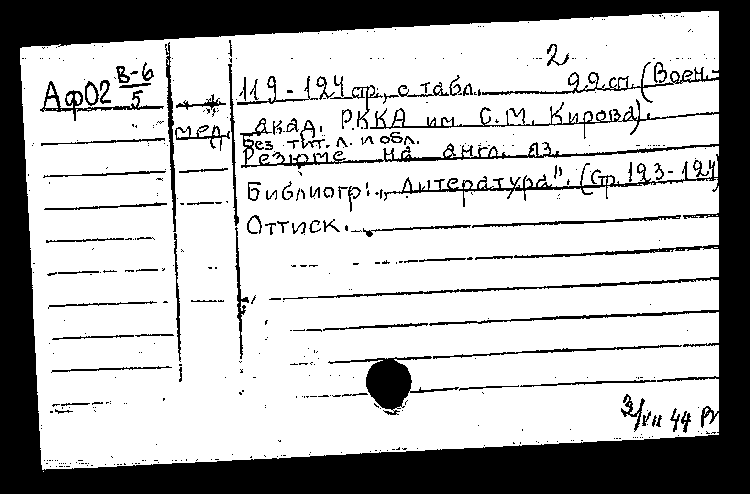 2.
Аф02 В-6/5
119-124 стр., с табл. 22 см. (Воен.-
мед.
акад. РККА им. С.М. Кирова).
Без тит. л. и обл.
Резюме на англ. яз.
Библиогр.: „Литература". (Стр. 123-124)
Оттиск.
3/VII 44